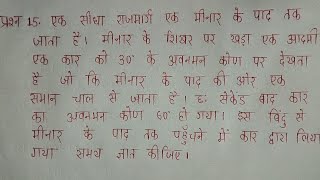 प्रश्न 15. एक सीधा राजमार्ग एक मीनार के पाद तक
जाता है। मीनार के शिखर पर खड़ा एक आदमी
एक कार को 30° के अवनमन कोण पर देखता
है जो कि मीनार के पाद की ओर एक
समान चाल से जाता है। छः सेकेंड बाद कार
का अवनमन कोण 60° हो गया। इस बिंदु से
मीनार के पाद तक पहुँचने में कार द्वारा लिया
गया समय ज्ञात कीजिए।